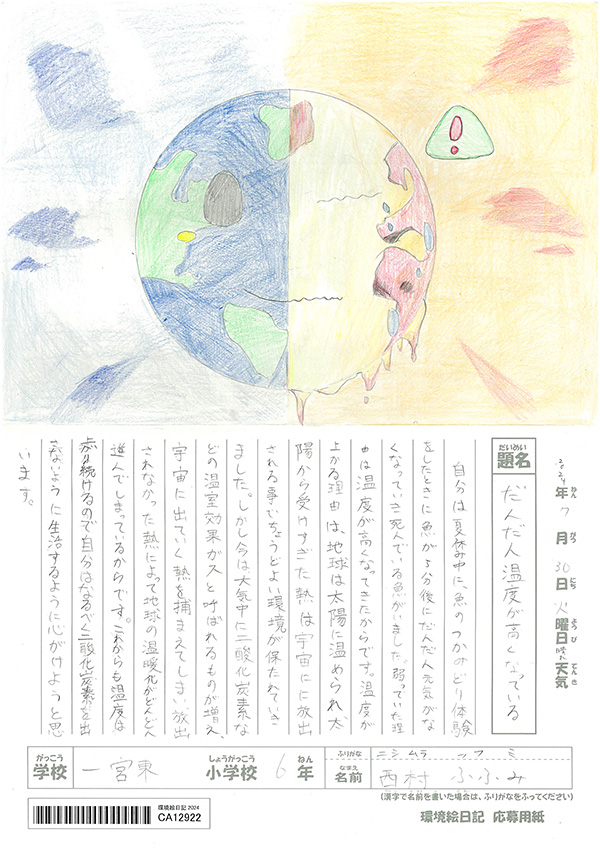 2024年7月30日火曜日晴れ天気
ねん
がつ
にち
ようび
てんき
だいめい
題名
だんだん温度が高くなっている
自分は夏休み中に、魚のつかみどり体験
をしたときに魚が5分後にだんだん元気がな
くなっていき死んでいる魚がいました。弱っていた理
由は温度が高くなってきたからです。温度が
上がる理由は、地球は太陽に温められ太
陽から受けすぎた熱は宇宙にに放出
される事でちょうどよい環境が保たれていき
ました。しかし今は、大気中に二酸化炭素な
どの温室効果ガスと呼ばれるものが増え、
宇宙に出ていく熱を捕まえてしまい放出
されなかった熱によって地球の温暖化がどんどん
進んでしまっているからです。これからも温度は
上がり続けるので自分はなるべく二酸化炭素を出
さないように生活するように心がけようと思
います。
がっこう
学校
一宮東
しょうがっこう
小学校
6年
ねん
ふりがな
ニシムラ フフミ
なまえ
名前
西村 ふふみ
(漢字で名前を書いた場合は、ふりがなをふってください)
環境絵日記 2024
CA12922
環境絵日記 応募用紙